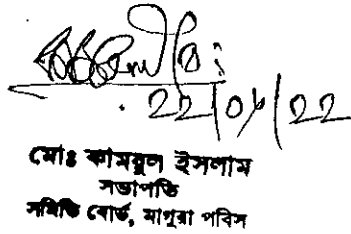 ২২/০৮/২২
মোঃ কামরুল ইসলাম
সভাপতি
সমিতি বোর্ড, মাগুরা পবিস